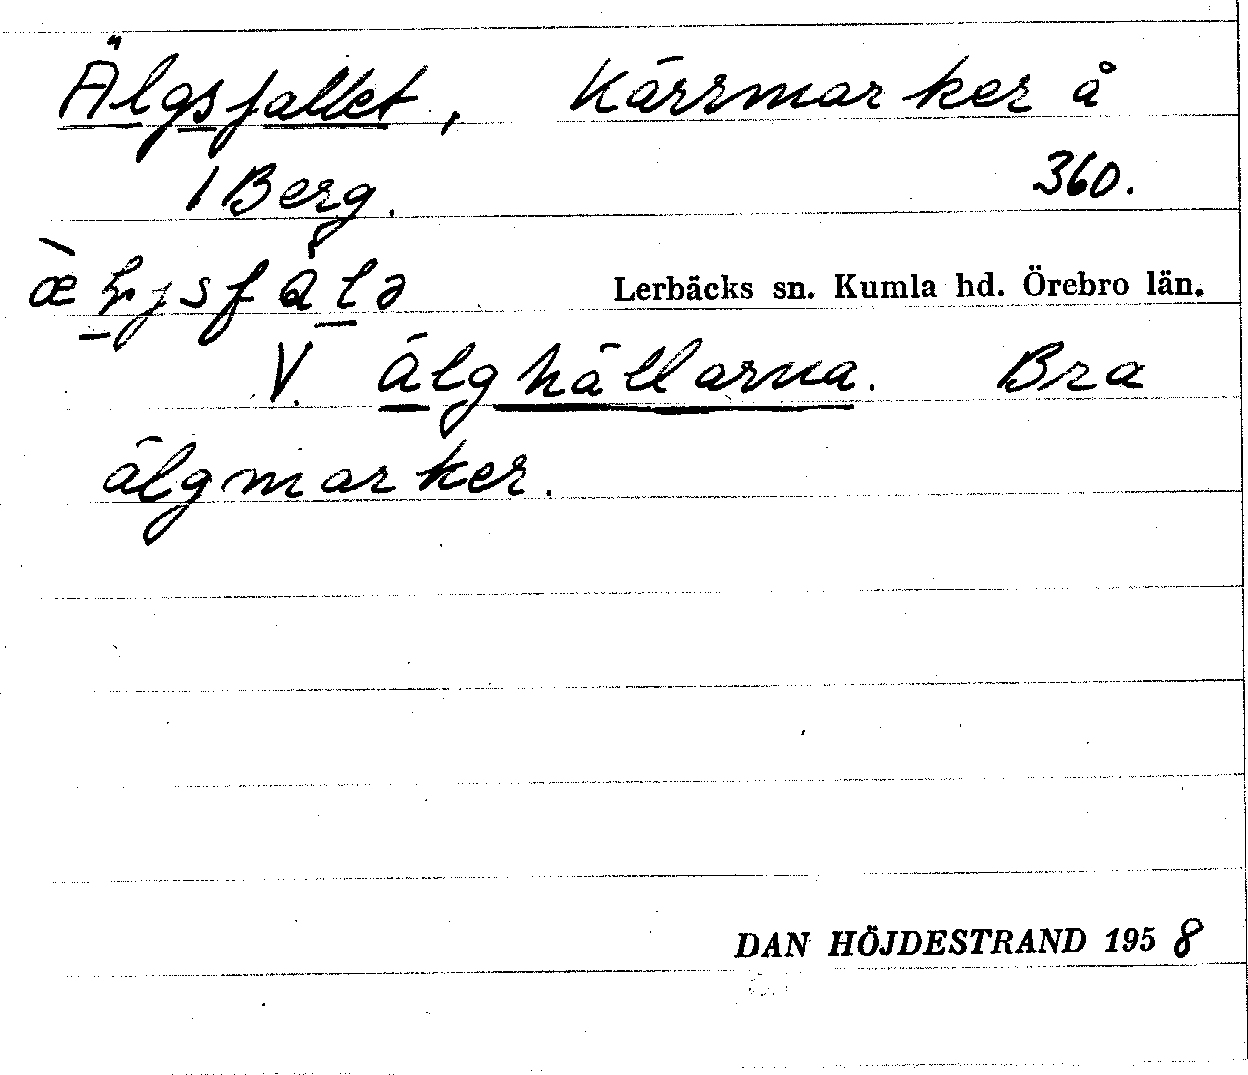 Älgsfallet, Kärrmarker å
1 Berg. 360.
Lerbäcks sn. Kumla hd. Örebro län.
V. älghällarna. Bra
älgmarker.
DAN HÖJDESTRAND 1958